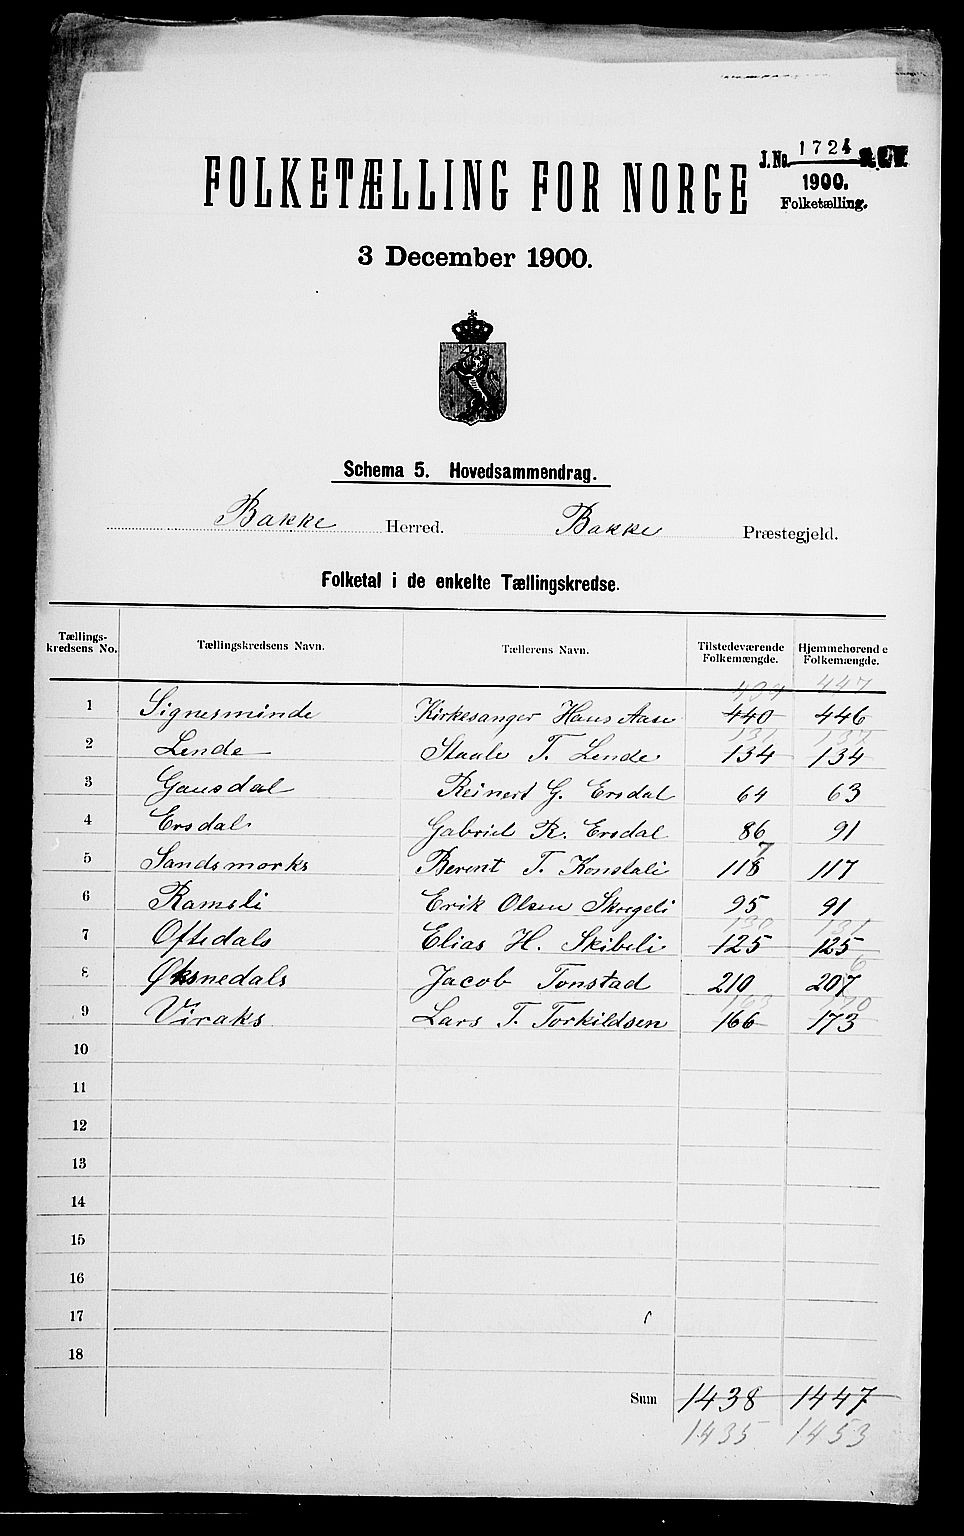 J.No. 1724
1900.
Folketælling.
FOLKETÆLLING FOR NORGE
3 December 1900.
Schema 5. Hovedsammendrag.
Bakke Herred. Bakke Præstegjeld.
Folketal i de enkelte Tællingskredse.
Tællings-kredsens No. Tællingskredsens Navn. Tællerens Navn. Tilstedeværende Folkemængde. Hjemmehørende Folkemængde.
434 447
1 Signesminde Kirkesanger Hans Aase 440 446
131 132
2 Lende Staale T. Lende 134 134
3 Gausdal Reinert G. Ersdal 64 63
4 Ersdal Gabriel R. Ersdal 86 91
7
5 Sandsmarks Berent T. Konstali 118 117
6 Ramsli Erik Olsen Skregeli 95 91
130 131
7 Oftedals Elias H. Skibeli 125 125
6
8 Øksnedals Jacob Tonstad 210 207
9 Viraks Lars T. Torkildsen 166 173
10
11
12
13
14
15
16
17
18
Sum 1438 1447
1435 1453